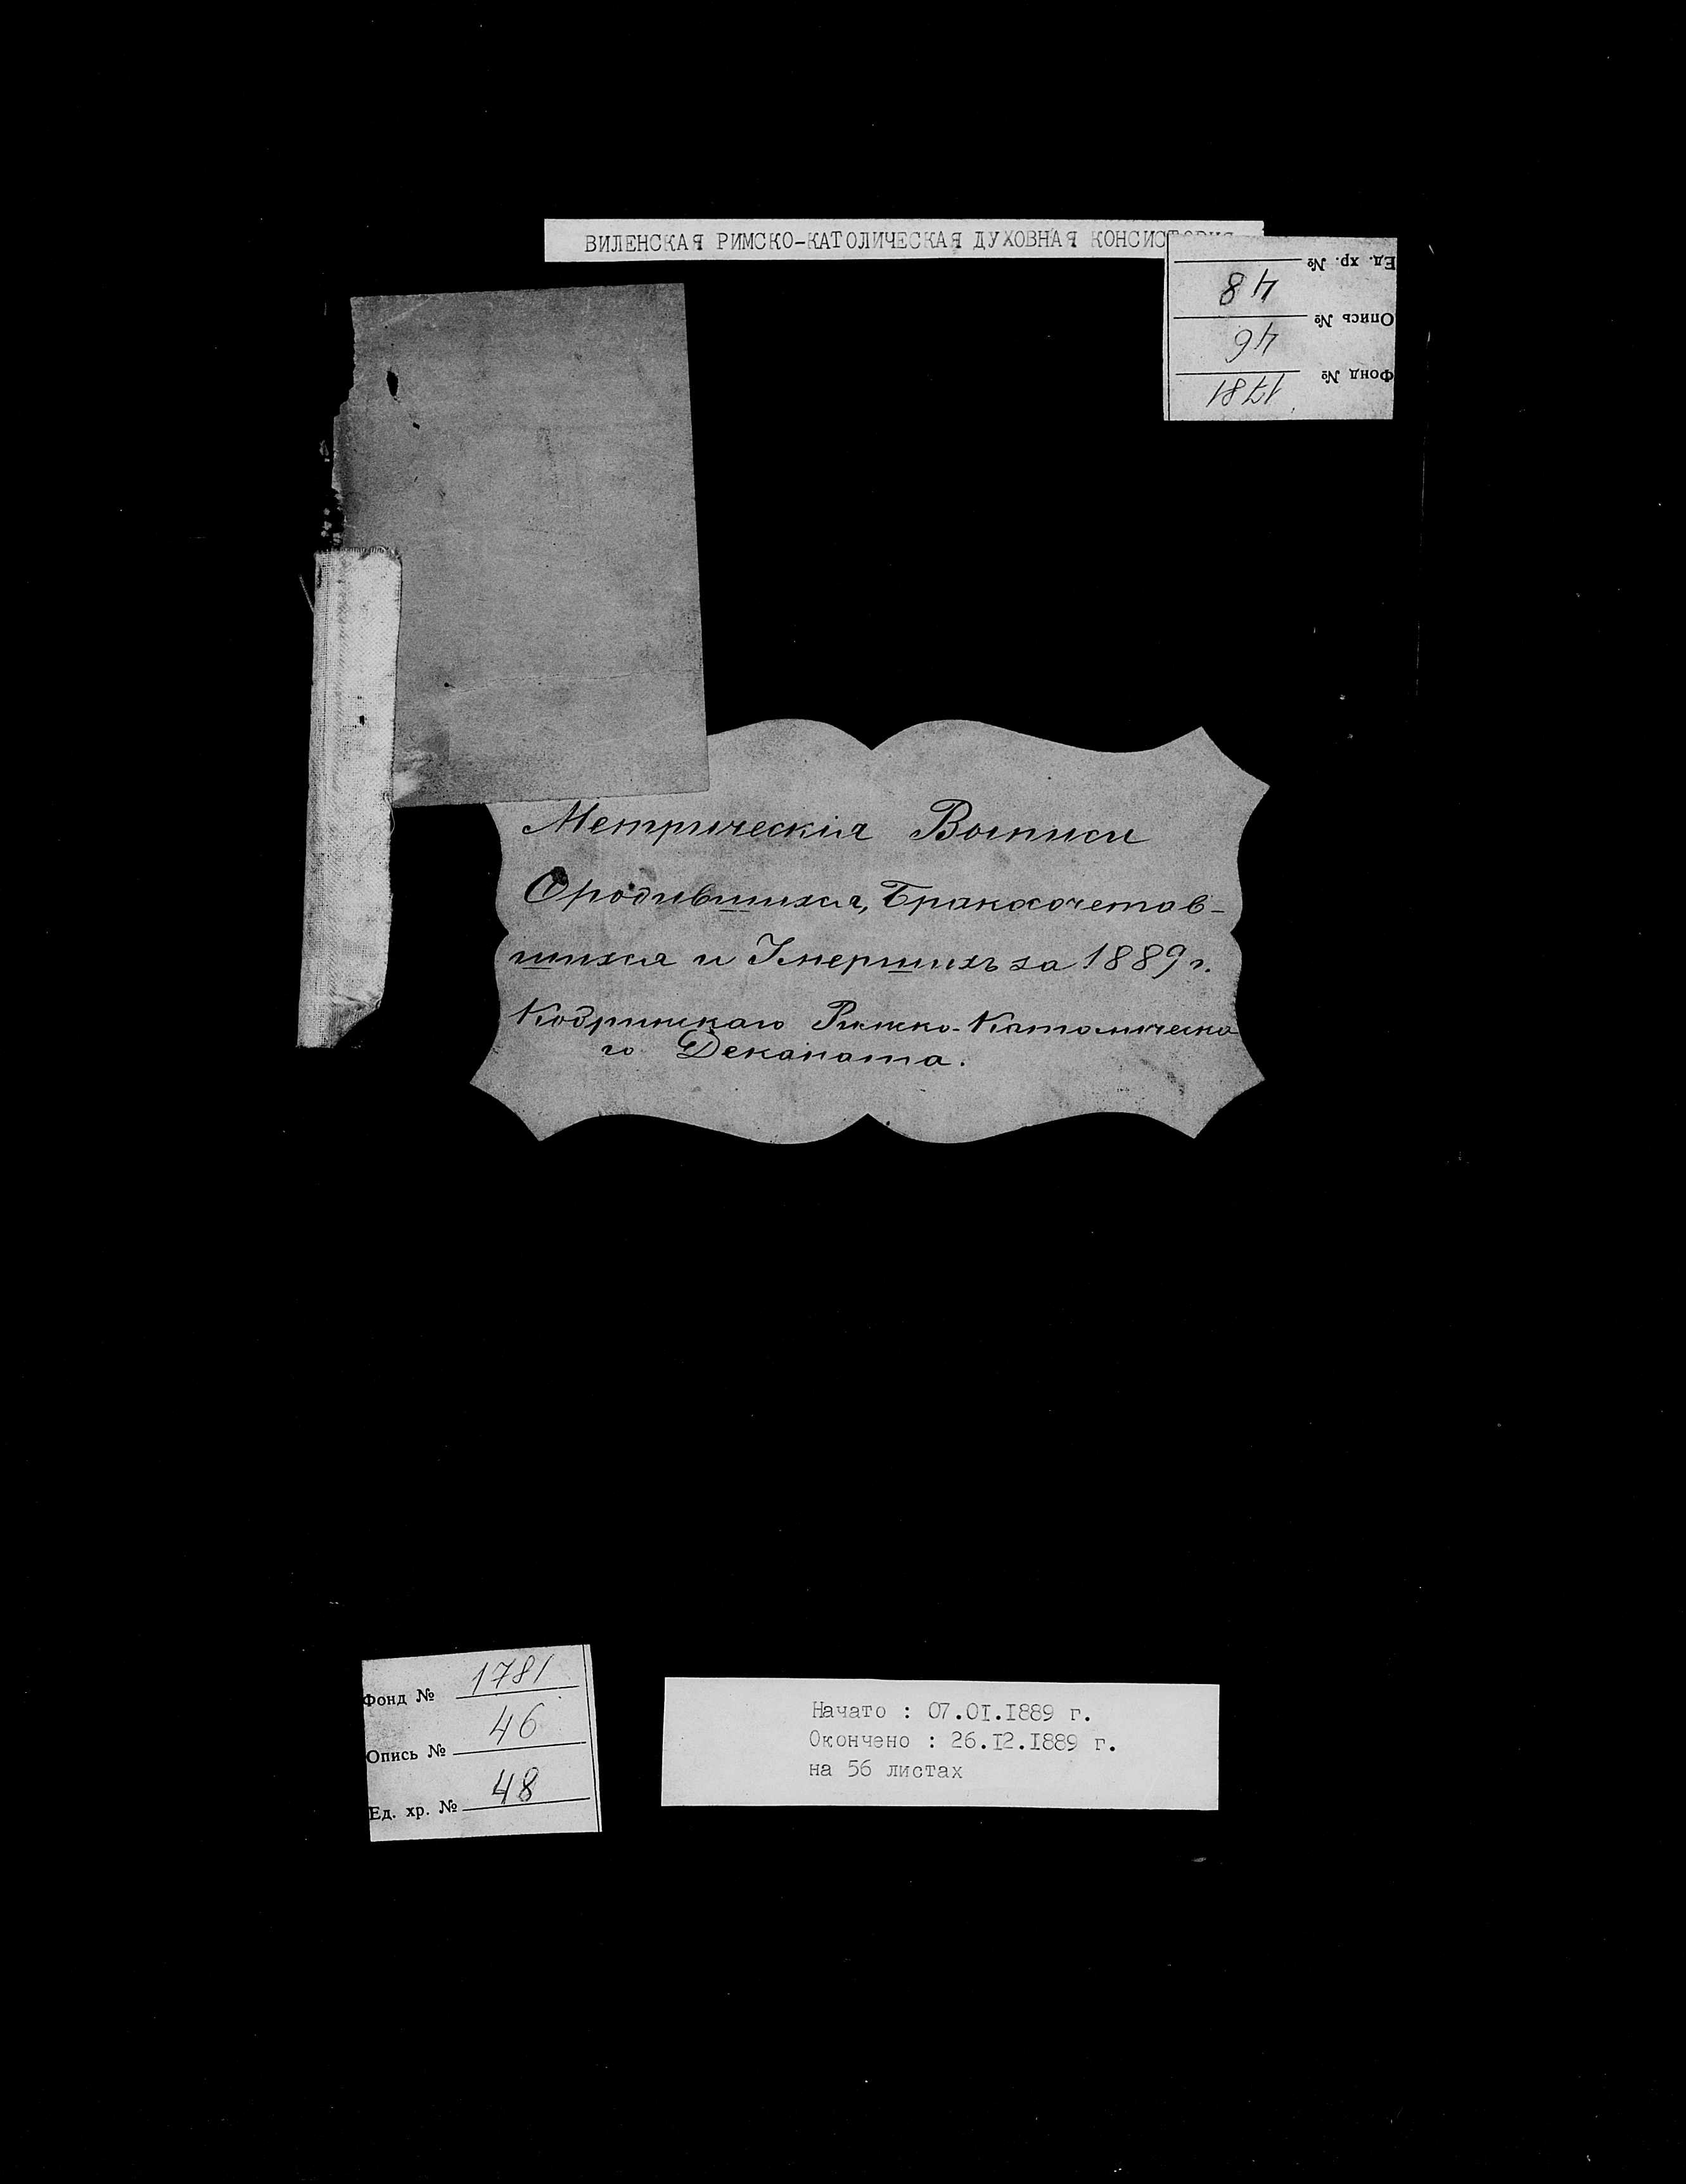 ВИЛЕНСКАЯ РИМСКО-КАТОЛИЧЕСКАЯ ДУХОВНАЯ КОНСИСТОРИЯ
Фонд № 1781
Опись № 46
Ед. хр. № 48
Метрическія Выписи
О родившихся, Бракосочетав-
шихся и Умершихъ за 1889 г.
Кобринскаго Римско-Католическа
го Деканата.
Фонд № 1781
Опись № 46
Ед. хр. № 48
Начато : 07.01.1889 г.
Окончено : 26.12.1889 г.
на 56 листах